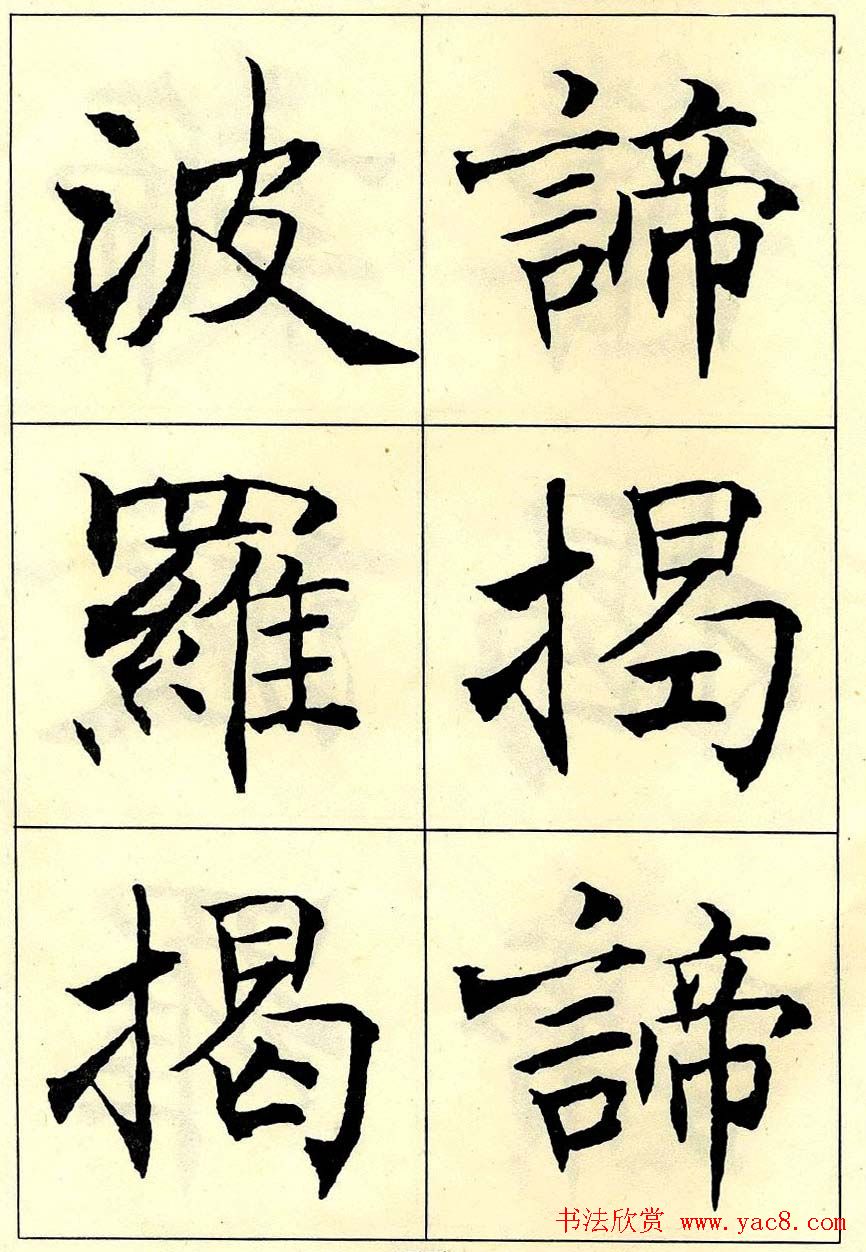 諦揭諦
波羅揭
书法欣赏 www.yac8.com